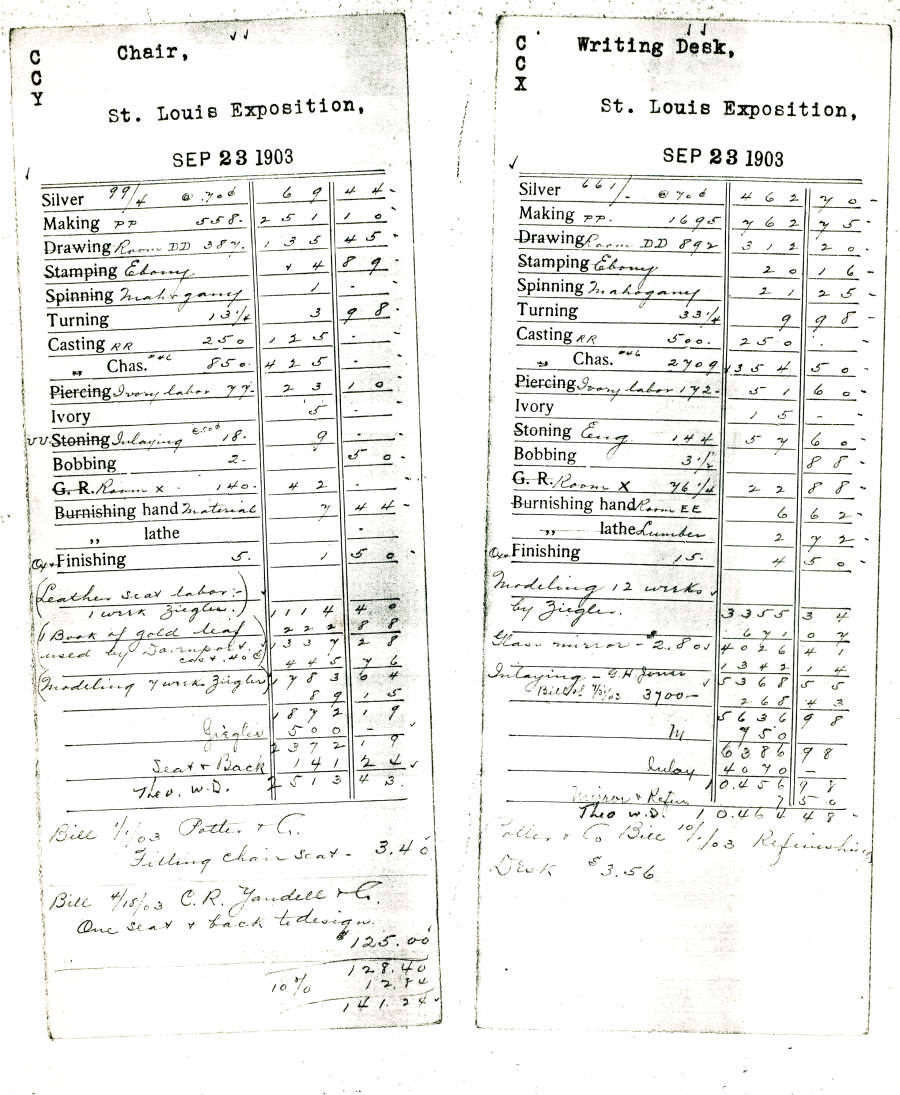 C
C
Y
Chair,
St. Louis Exposition,
SEP 23 1903
Silver 99/4 @ .70¢ 69 44
Making PP 558. 251 10
Drawing Room DD 387. 135 45
Stamping Ebony 4 89
Spinning Mahogany 1 -
Turning 13 1/4 3 98
Casting RR 250 125 -
„ Chas. #46 850. 425 -
Piercing Ivory labor 77- 23 10
Ivory 5 -
Stoning Inlaying @.50¢ 18. 9 -
Bobbing 2- 50
G. R. Room X 140. 42 -
Burnishing hand Material 7 44
„ lathe -
Finishing 5. 1 50
(Leather seat labor:-
1 week Ziegler.) 1114 40
(1 Book of gold leaf 222 88
used by Davnport. 1337 28
cost .40¢) 445 76
(Modeling 7 weeks Ziegler) 1783 04
89 15
1872 19
Giegler 500 -
2372 19
Seat & Back 141 24
Theo. W.D. 2513 43
Bill 1/1/03 Potter & Co.
Filling chair seat - 3.40
Bill 4/15/03 C.R. Yandell & Co.
One seat & back to design.
$125.00
128.40
10% 12.84
141.24
C
C
X
Writing Desk,
St. Louis Exposition,
SEP 23 1903
Silver 661/- @ 70¢ 462 70
Making PP. 1695 762 75
Drawing Room DD 892 312 20
Stamping Ebony 20 16
Spinning Mahogany 21 25
Turning 33 1/4 9 98
Casting RR 500. 250 -
„ Chas. #46 2709 1354 50
Piercing Ivory labor 172- 51 60
Ivory 15 -
Stoning Eng. 144 57 60
Bobbing 3 1/2 88
G. R. Room X 76 1/4 22 88
Burnishing hand Room EE 6 62
„ lathe Lumber 2 72
Finishing 15. 4 50
Modeling 12 weeks
by Ziegler. 3355 34
671 07
Glass mirror - $2.80 4026 41
1342 14
Inlaying - G.H. Jones 5368 55
Bill of 7/3/03 3700- 268 43
5636 98
750
6386 98
Inlay 4070 -
10.456 98
Mirror & Refin 7 50
Theo W.D. 10.464 48
Potter & Co Bill 10/1/03 Refinishing
Desk $3.56